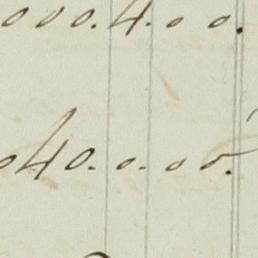 000.4.00.
040.0.00.